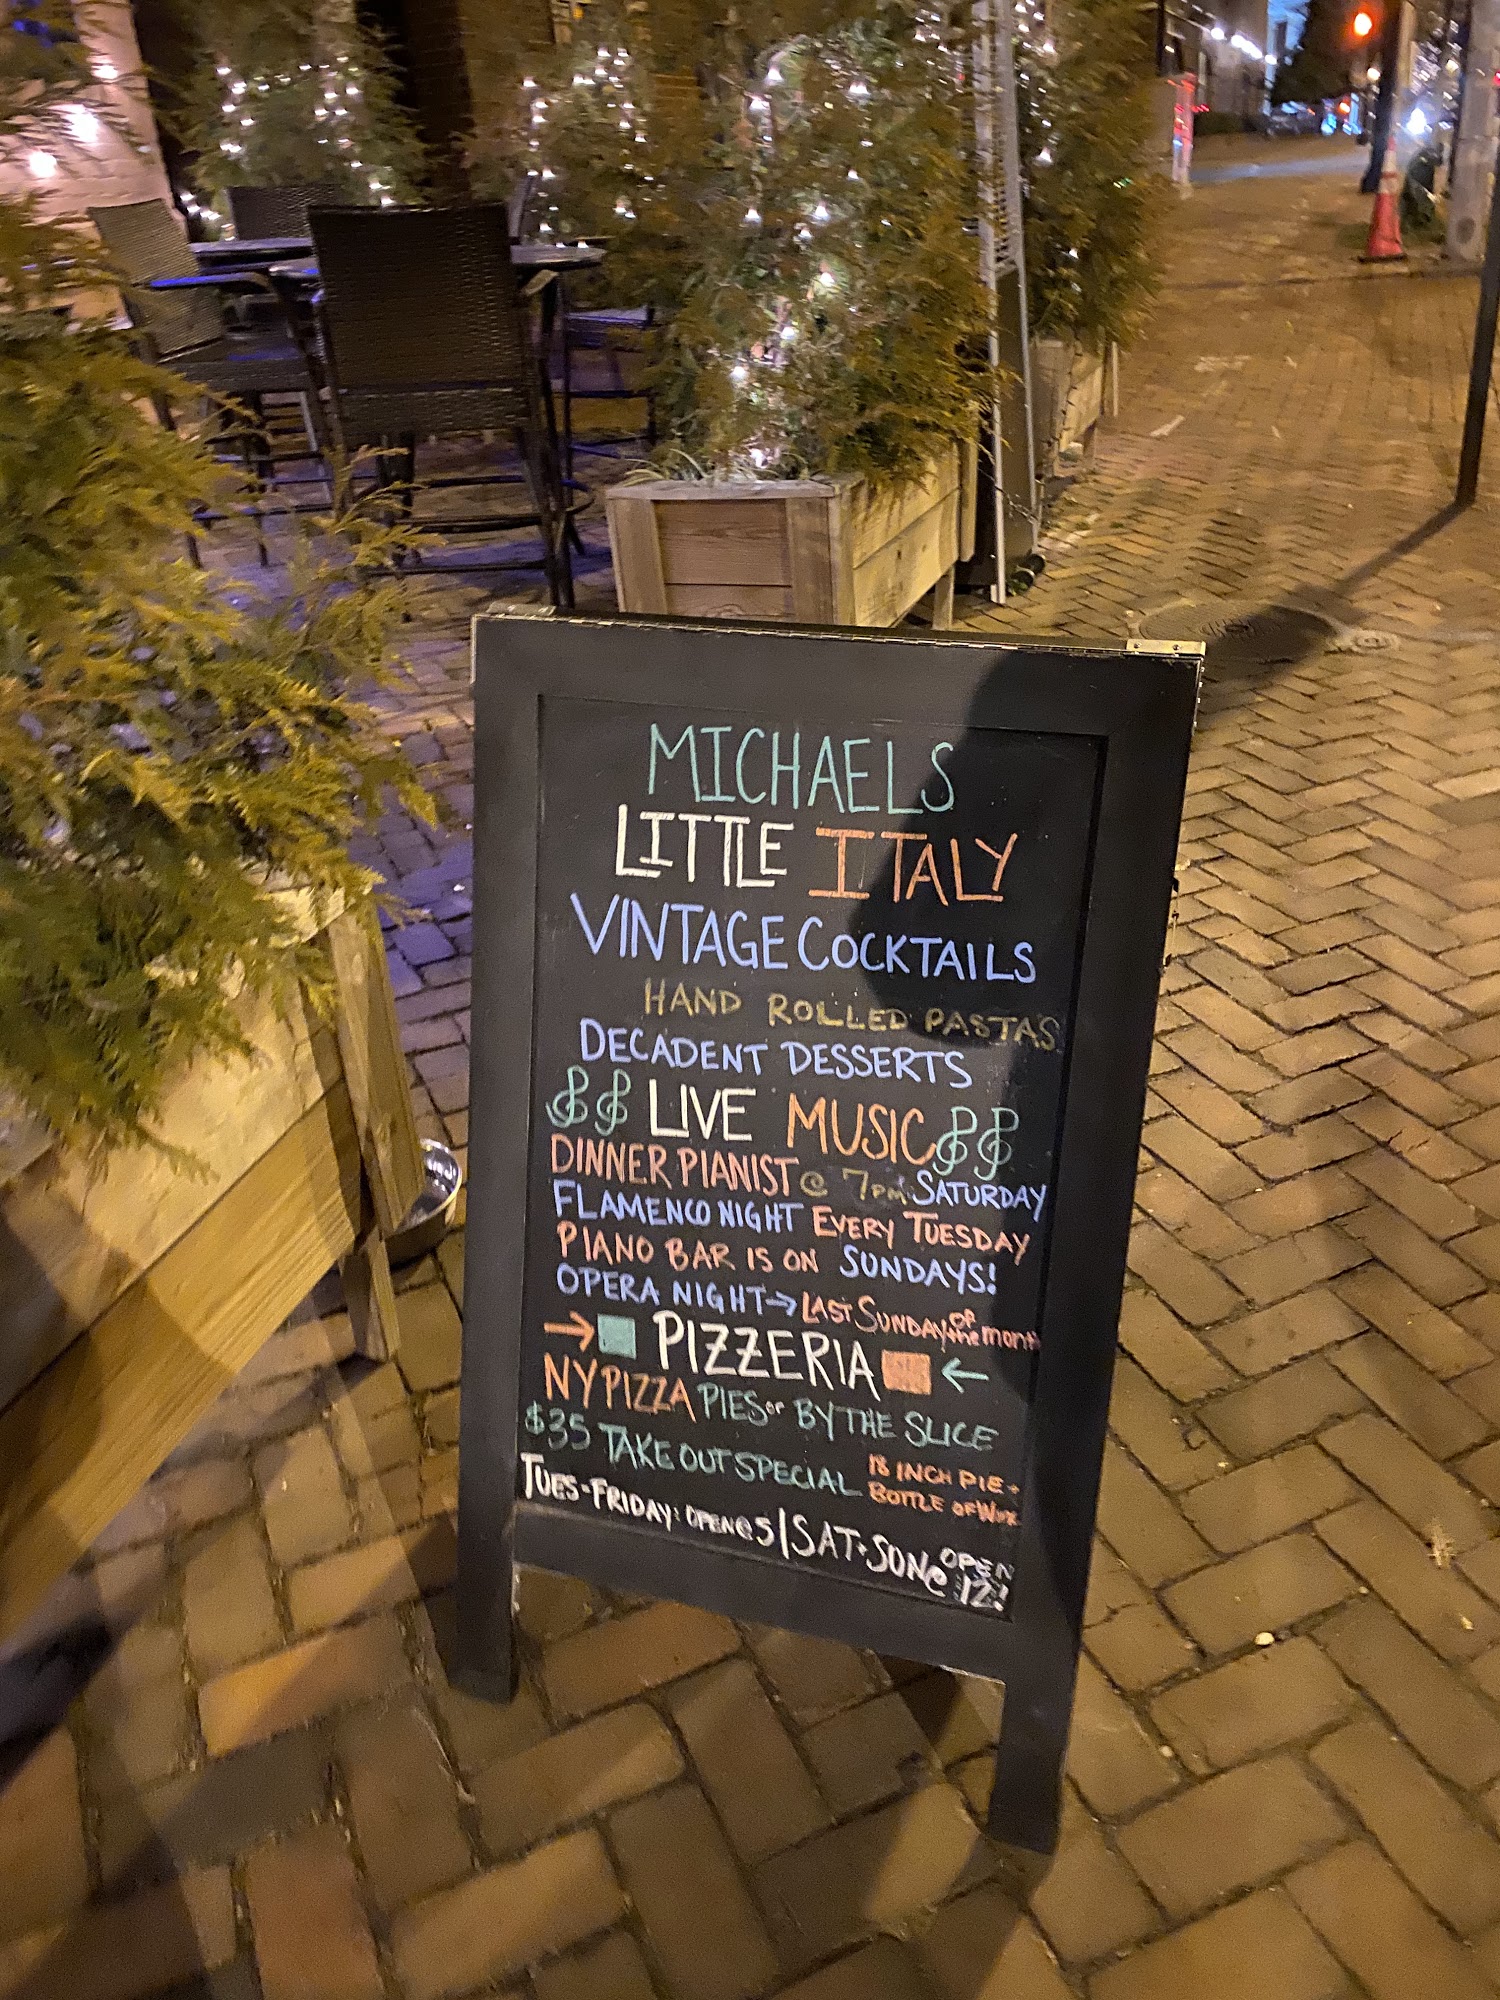 MICHAELS
LITTLE ITALY
VINTAGE COCKTAILS
HAND ROLLED PASTAS
DECADENT DESSERTS
LIVE MUSIC
DINNER PIANIST @ 7PM SATURDAY
FLAMENCO NIGHT EVERY TUESDAY
PIANO BAR IS ON SUNDAYS!
OPERA NIGHT → LAST SUNDAY OF the month
→ PIZZERIA ←
NY PIZZA PIES or BY THE SLICE
$35 TAKE OUT SPECIAL 18 INCH PIE +
BOTTLE OF Wine
TUES-FRIDAY: OPEN @ 5 | SAT + SUN @ OPEN
12!